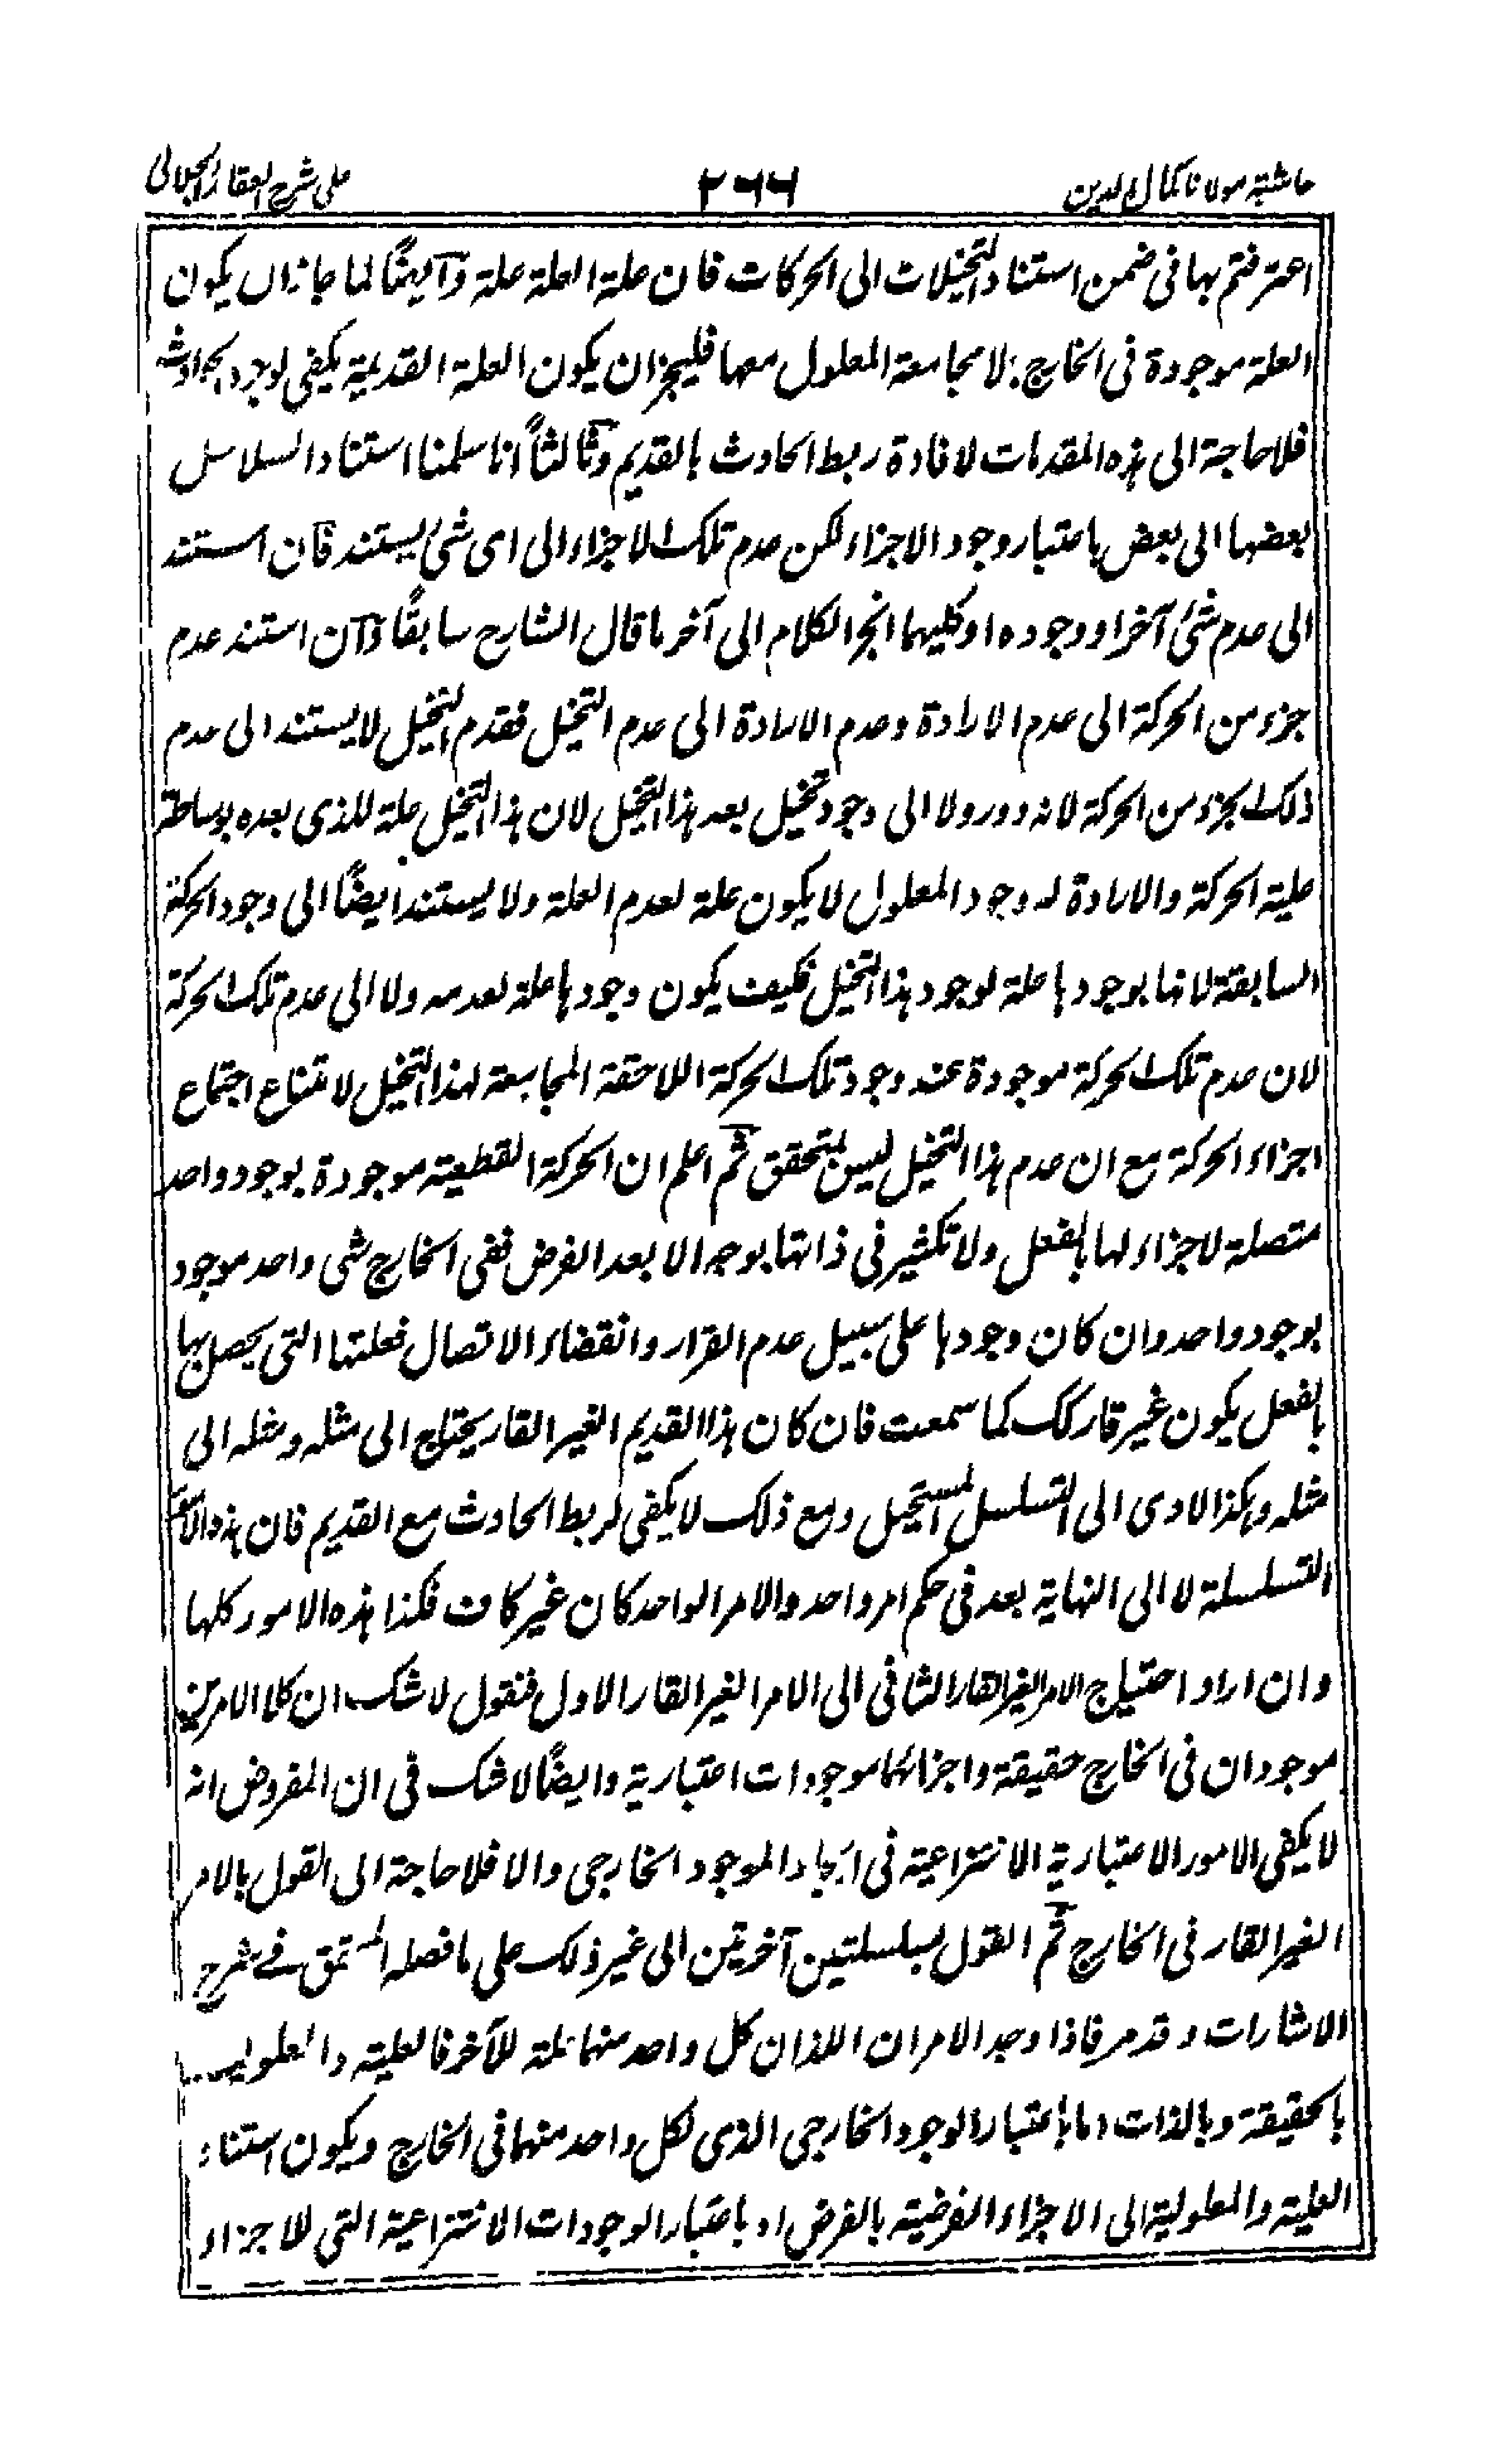 حاشية مولانا كمال الدين ٢٦٦ على شرح العقائد الجلالى
اعترفتم بها فى ضمن استناد التخيلات الى الحركات فان علة العلة علة وآيضًا لما جاز ان يكون
العلة موجودة فى الخارج بلا مجامعة المعلول معها فليجز ان يكون العلة القديمة يكفى لوجود الحوادث
فلا حاجة الى هذه المقدمات لافادة ربط الحادث بالقديم وثالثًا انا سلمنا استناد السلاسل
بعضها الى بعض باعتبار وجود الاجزاء لكن عدم تلك الاجزاء الى اى شئ يستند فان استند
الى عدم شئ آخر او وجوده او كليهما انجر الكلام الى آخر ما قال الشارح سابقًا وآن استند عدم
جزء من الحركة الى عدم الارادة وعدم الارادة الى عدم التخيل فقدم التخيل لا يستند الى عدم
ذلك بجزء من الحركة لانه دور ولا الى وجود تخيل بعد هذا التخيل لان هذا التخيل علة للذى بعده بوساطة
علية الحركة والارادة له وجود المعلول لا يكون علة لعدم العلة ولا يستند ايضًا الى وجود الحركة
السابقة لانها بوجودها علة لوجود هذا التخيل فكيف يكون وجودها علة لعدمه ولا الى عدم تلك الحركة
لان عدم تلك الحركة موجودة عند وجود تلك الحركة اللاحقة المجامعة لهذا التخيل لامتناع اجتماع
اجزاء الحركة مع ان عدم هذا التخيل ليس بمتحقق ثم اعلم ان الحركة القطعية موجودة بوجود واحد
متصلة لا جزاء لها بالفعل ولا تكثير فى ذاتها بوجه الا بعد الفرض ففى الخارج شى واحد موجود
بوجود واحد وان كان وجودها على سبيل عدم القرار وانقضاء الاتصال فعلتها التى يحصل بها
بالفعل يكون غير قار كك كما سمعت فان كان هذا القديم الغير القار يحتاج الى مثله ومثله الى
مثله وهكذا لادى الى التسلسل المستحيل ومع ذلك لا يكفى لربط الحادث مع القديم فان هذه الامور
التسلسلة لا الى النهاية بعد فى حكم امر واحد والامر الواحد كان غير كاف فكذا هذه الامور كلها
وان اراد احتياج الامر الغير القار الثانى الى الامر الغير القار الاول فنقول لا شك ان كلا الامرين
موجودان فى الخارج حقيقة واجزائهما موجودات اعتبارية وايضًا لا شك فى ان المفروض انه
لا يكفى الامور الاعتبارية الانتزاعية فى ايجاد الموجود الخارجى والا فلا حاجة الى القول بالامر
الغير القار فى الخارج ثم القول بسلسلتين آخرتين الى غير ذلك على ما فصله المحقق فے شرح
الاشارات وقد مر فاذا وجد الامران اللذان كل واحد منهما علة للآخر فالعلية والمعلولية
بالحقيقة وبالذات اما باعتبار الوجود الخارجى الذى لكل واحد منهما فى الخارج ويكون استناد
العلية والمعلولية الى الاجزاء الفرضية بالفرض او باعتبار الوجودات الانتزاعية التى للاجزاء